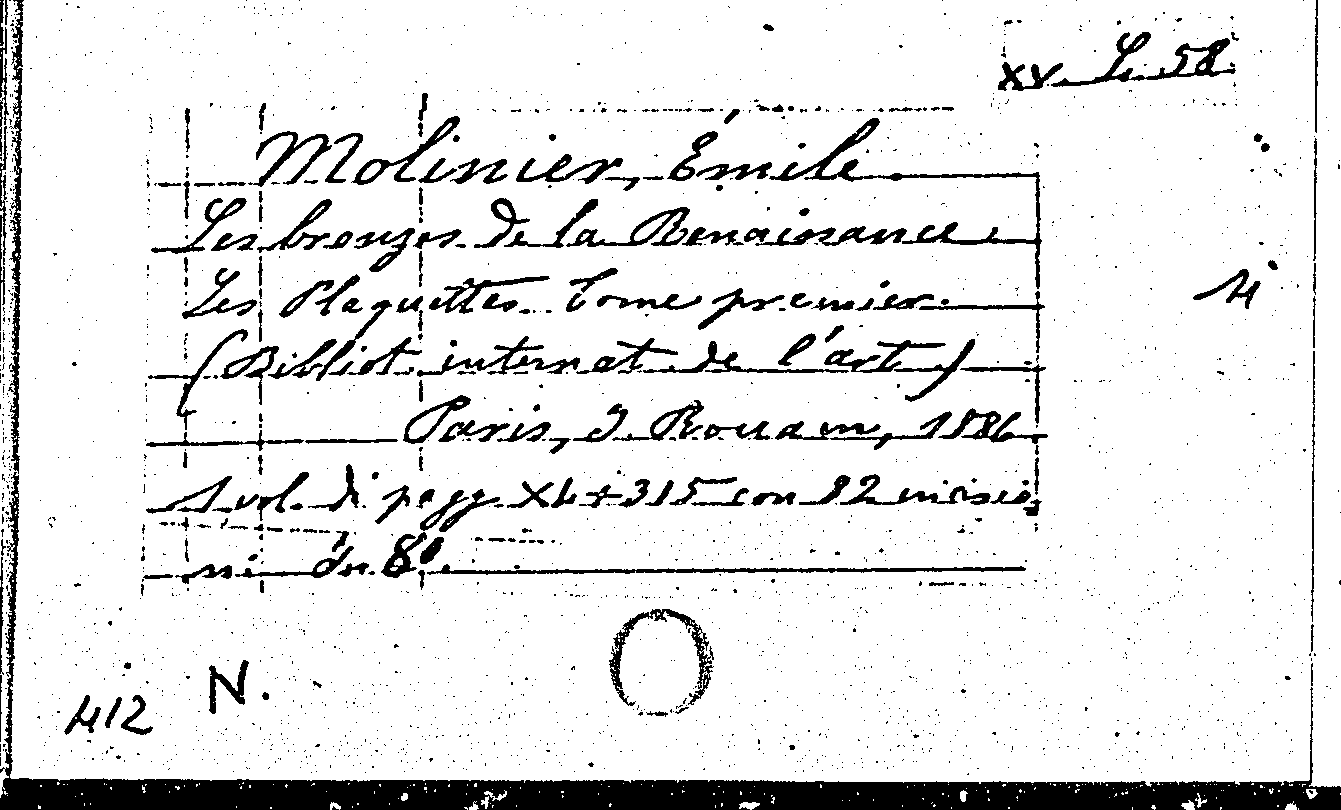 XV. L. 58
Molinier, Émile.
Les bronzes de la Renaissance.
Les Plaquettes. Tome premier.
(Bibliot. internat. de l'art)
Paris, J. Rouam, 1886.
1 vol. di pagg. XL+315 con 82 incisio,
ni in 8º.
N.
412